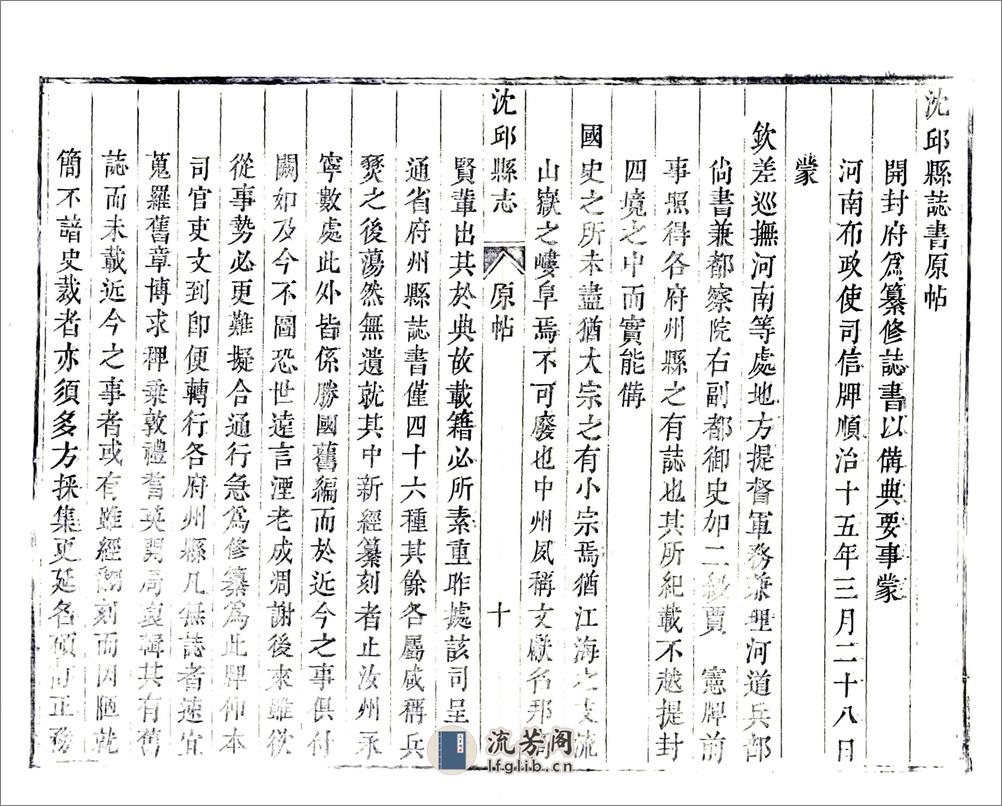 沈邱縣誌書原帖
開封府爲纂修誌書以備典要事蒙
河南布政使司信牌順治十五年三月二十八日
蒙
欽差巡撫河南等處地方提督軍務兼理河道兵部
尚書兼都察院右副都御史加二級賈　憲牌前
事照得各府州縣之有誌也其所紀載不越提封
四境之中而實能備
國史之所未盡猶大宗之有小宗焉猶江海之支流
山嶽之嶁阜焉不可廢也中州夙稱文獻名邦
沈邱縣志
原帖
十
賢輩出其於典故載籍必所素重昨據該司呈
通省府州縣誌書僅四十六種其餘各屬咸稱兵
燹之後蕩然無遺就其中新經纂刻者止汝州永
寧數處此外皆係勝國舊編而於近今之事俱付
闕如及今不圖恐世遠言湮老成凋謝後來雖欲
從事勢必更難擬合通行急爲修纂爲此牌仰本
司官吏文到卽便轉行各府州縣凡無誌者速宜
蒐羅舊章博求稗乗敦禮耆英開局裒輯其有舊
誌而未載近今之事者或有雖經翻刻而因陋就
簡不諳史裁者亦須多方採集更延名碩訂正務
流芳阁
lfglib.cn